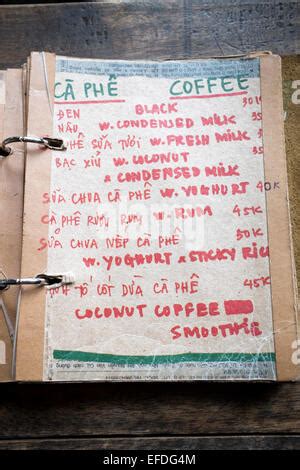 CÀ PHÊ COFFEE
ĐEN BLACK 30K
NÂU W. CONDENSED MILK 35
PHÊ SỮA TƯƠI W. FRESH MILK 35
BẠC XỈU W. COCONUT 35
& CONDENSED MILK
SỮA CHUA CÀ PHÊ W. YOGHURT 40K
CÀ PHÊ RUMY RUM W. RUM 45K
SỮA CHUA NẾP CÀ PHÊ 50K
W. YOGHURT & STICKY RICE
SINH TỐ CỐT DỪA CÀ PHÊ 45K
COCONUT COFFEE
SMOOTHIE
alamy
Image ID: EFDG4M
www.alamy.com